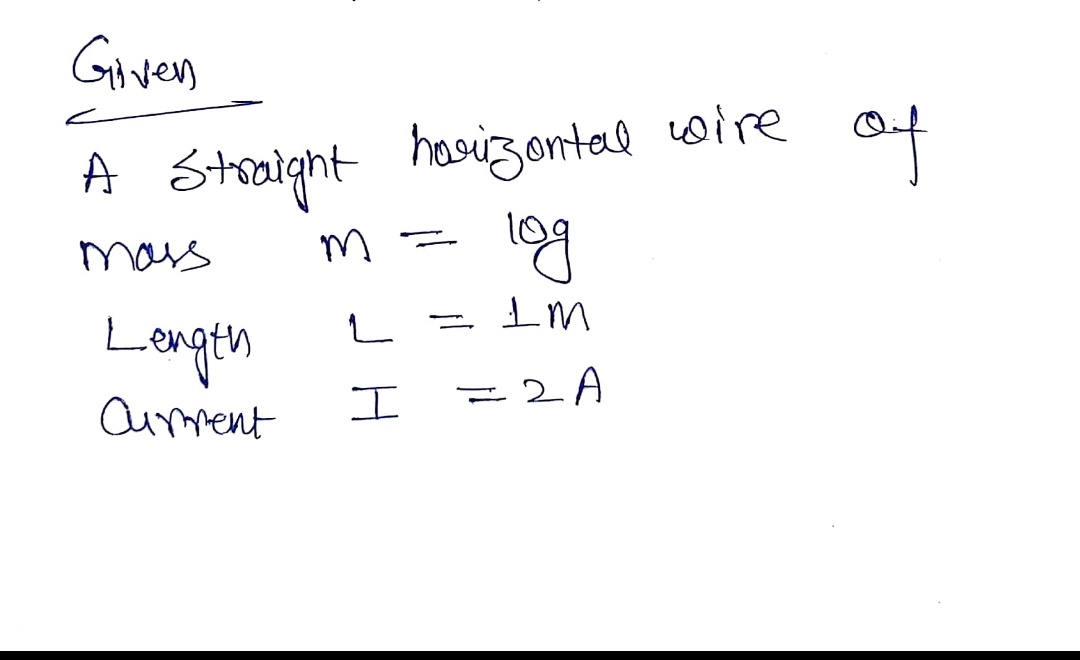 Given
A straight horizontal wire of
mass m = 10g
Length L = 1m
Current I = 2A